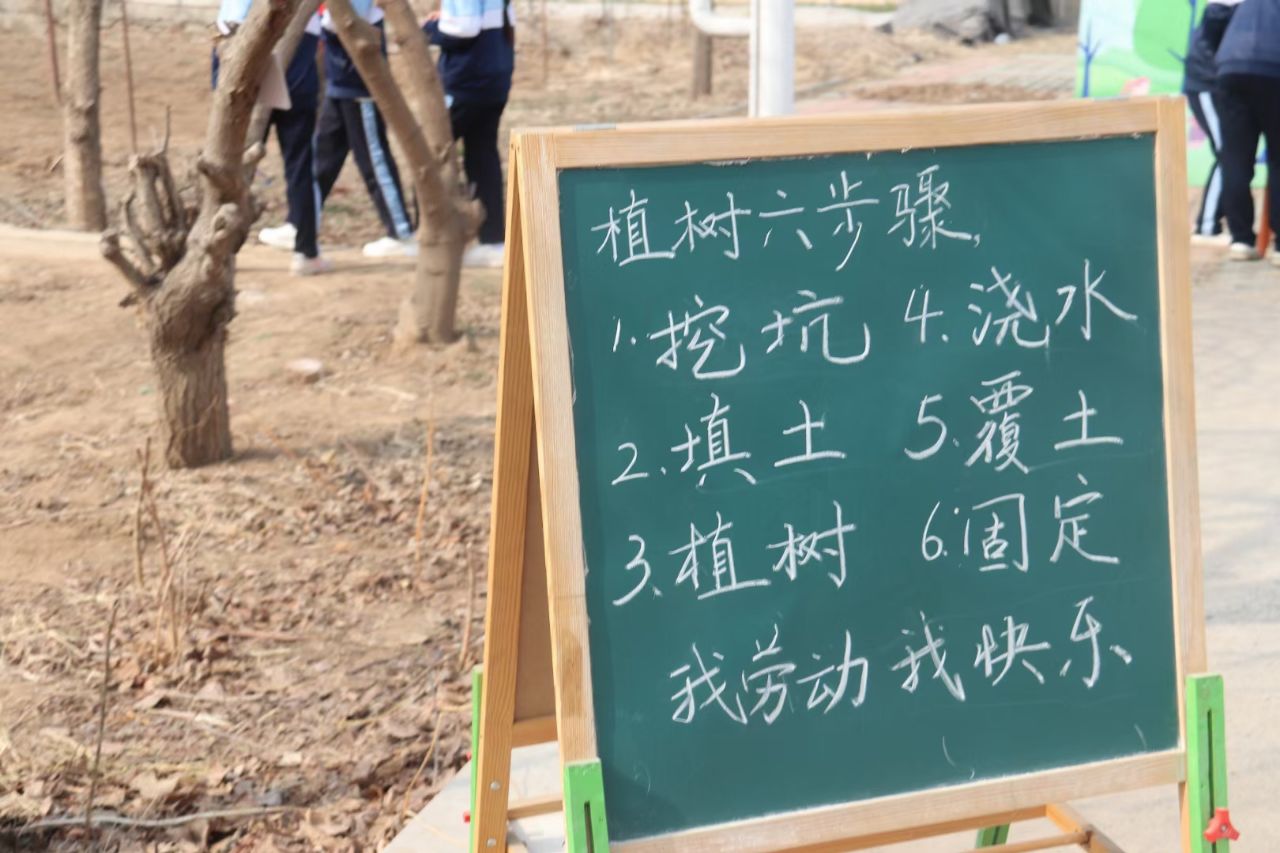 植树六步骤,
1.挖坑 4.浇水
2.填土 5.覆土
3.植树 6.固定
我劳动我快乐